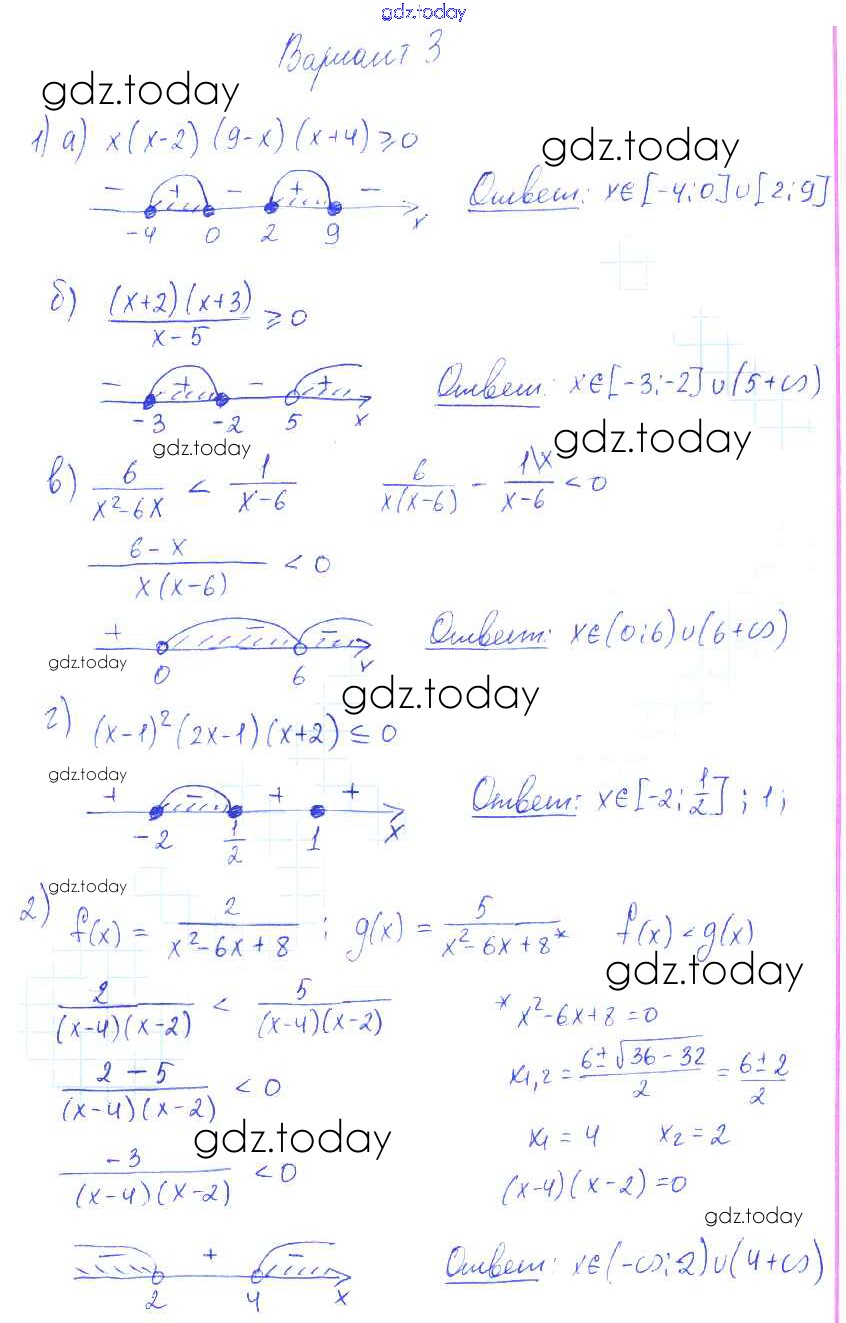 gdz.today
Вариант 3
gdz.today
1) а) x(x-2)(9-x)(x+4)≥0
gdz.today
- + - + -
-4 0 2 9 x
Ответ: x∈[-4;0]∪[2;9]
б) (x+2)(x+3)/(x-5) ≥0
- + - +
-3 -2 5 x
Ответ: x∈[-3;-2]∪(5+∞)
gdz.today
gdz.today
в) 6/(x²-6x) < 1/(x-6) 6/(x(x-6)) - 1\x/(x-6) <0
(6-x)/(x(x-6)) <0
+ - -
0 6 x
Ответ: x∈(0;6)∪(6+∞)
gdz.today
gdz.today
г) (x-1)²(2x-1)(x+2)≤0
gdz.today
+ - + +
-2 1/2 1 x
Ответ: x∈[-2;1/2]; 1;
gdz.today
2) f(x) = 2/(x²-6x+8) ; g(x) = 5/(x²-6x+8*) f(x)<g(x)
gdz.today
2/((x-4)(x-2)) < 5/((x-4)(x-2))
* x²-6x+8=0
(2-5)/((x-4)(x-2)) <0
x1,2 = (6±√(36-32))/2 = (6±2)/2
gdz.today
x1=4 x2=2
-3/((x-4)(x-2)) <0
(x-4)(x-2)=0
gdz.today
- + -
2 4 x
Ответ: x∈(-∞;2)∪(4+∞)